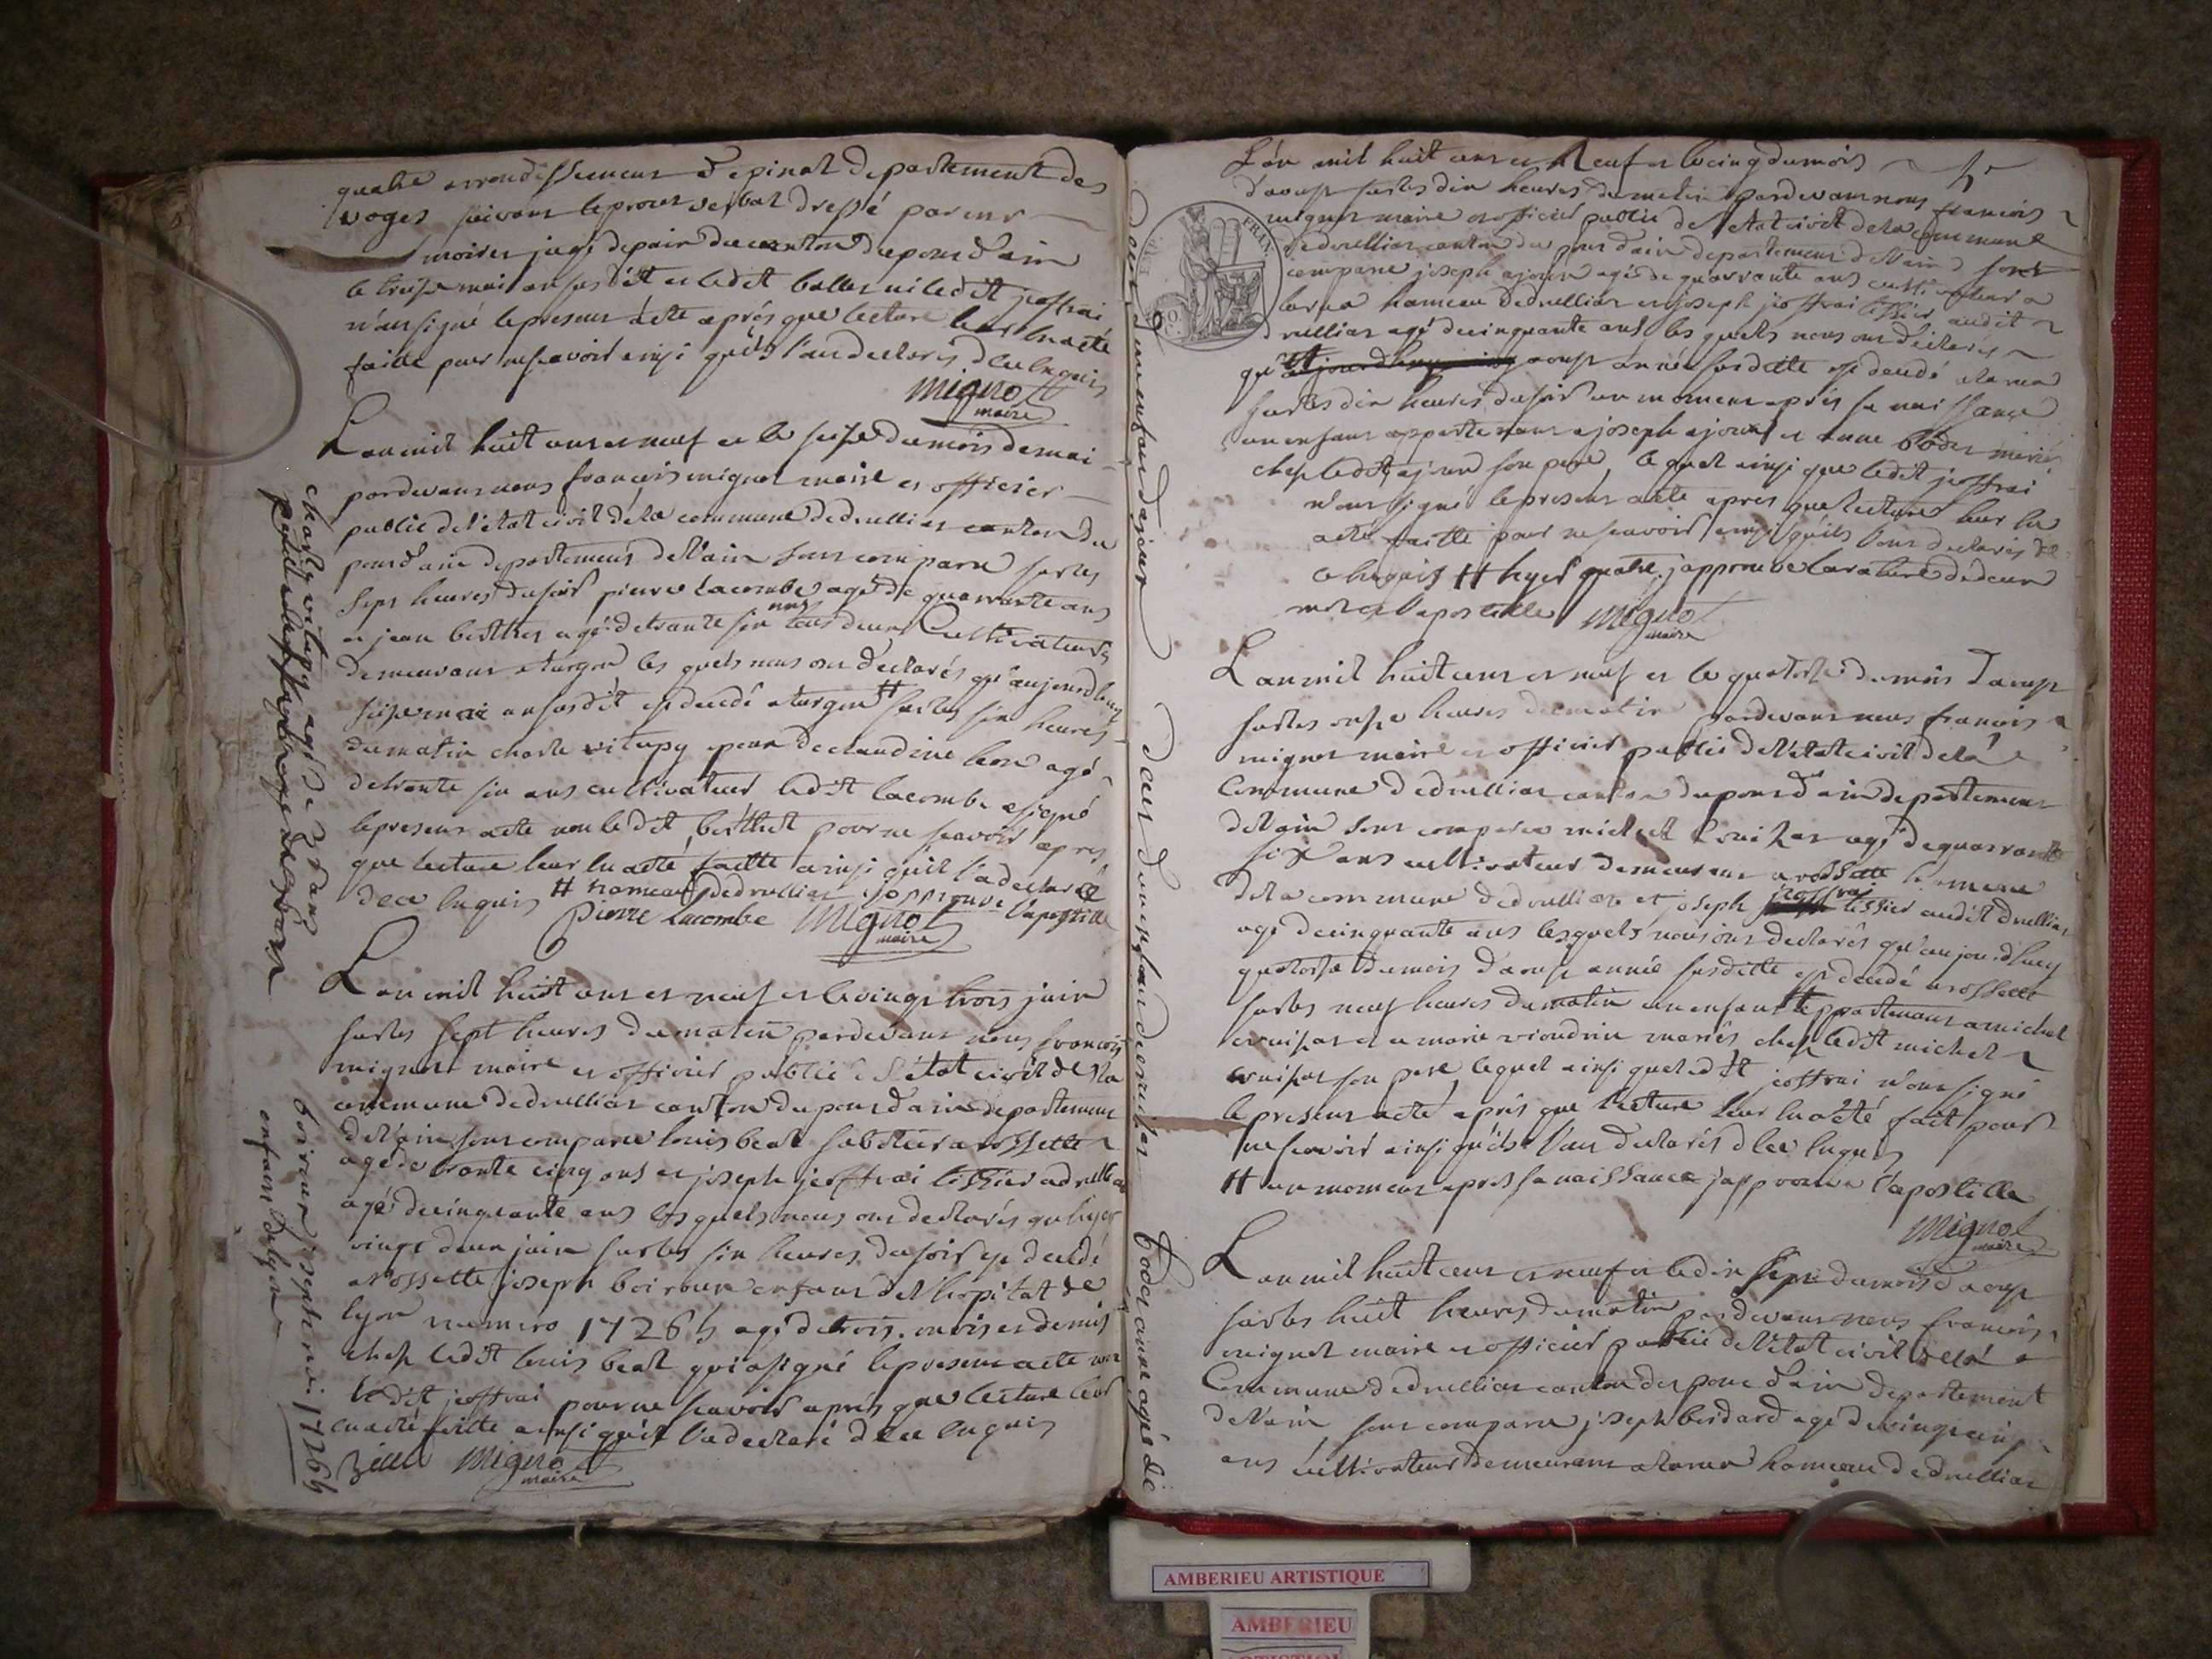 quatre arrondissement d'epinal departement des
voges suivant le proces verbal dressé par mr
moirier juge de paix du canton du pont d'ain
le treize mai an susdit et ledit ballet ni ledit jeoffrai
n'ont signé le present acte aprés que lecture leur en a été
faitte pour ne scavoir ainsi qu'ils l'ont declarés de ce enquis
mignot
maire
L'an mil huit cent et neuf et le seize du mois de mai
pardevant nous françois mignot maire et officier
public de l'état civil de la commune de druilliat canton du
pont d'ain departement de l'ain sont comparu sur les
sept heures du soir pierre lacombe agé de quarrante ans
et jean berthet agé de trante six ans tous deux Cultivateurs
demeurant a turgon les quels nous ont déclarés qu'aujourd'huy
seize mai an susdit est decedé a turgon # sur les six heures
du matin charle vitupy epoux de claudine leon agé
de trante six ans cultivateur ledit lacombe a signé
le present acte non ledit berthet pour ne scavoir apres
que lecture leur en a été faitte ainsi qu'il l'a declaré
de ce enquis # hameau de druilliat j'approuve l'apostille
pierre Lacombe mignot
maire
L'an mil huit cent et neuf et le vingt trois juin
sur les sept heures du matin pardevant nous françois
mignot maire et officier public de l'état civil de la
commune de druilliat canton du pont d'ain departement
de l'ain sont comparu louis beat sabotier a rossette
agé de trante cinq ans et joseph jeoffrai tissier a druilliat
agé de cinquante ans les quels nous ont declarés qu'hyer
vingt deux juin sur les six heures du soir est decedé
a rossette joseph boiroux enfant de l'hopital de
lyon numero 17265 agé de trois mois et demis
chez ledit louis beat qui a signé le present acte non
ledit jeoffrai pour ne scavoir aprés que lecture leur
en a été faitte ainsi qu'il l'a declaré de ce enquis
Béat mignot
maire
charle vitupy agé de 36 ans
boiroux joseph no. 17265
enfant de lyon
deces d'un enfant d'ajoux
deces d'un enfant de cruisat
bodet anne agée de
5
L'an mil huit cent et neuf et le cinq du mois
d'aoust sur les dix heures du matin pardevant nous francois
mignot maire et officier public de l'état civil de la commune
de druilliat canton du pont d'ain departement de l'ain sont
comparu joseph ajoux agé de quarrante ans cultivateur a
hameau de druilliat et joseph jeoffrai tissier audit
druilliat agé de cinquante ans les quels nous ont déclarés
qu' aoust année susditte est decedé
sur les dix heures du soir un moment aprés sa naissance
un enfant appartenant a joseph ajoux et anne bodet mariés
chez ledit ajoux son pere, le quel ainsi que ledit jeoffrai
n'ont signé le present acte apres que lecture leur en
a été faitte pour ne scavoir ainsi qu'ils l'ont declarés de
ce enquis # hyer quatre j'approuve la rature de deux
mots et l'apostille mignot
maire
L'an mil huit cent et neuf et le quatorze du mois d'aoust
sur les onze heures du matin pardevant nous francois
mignot maire et officier public de l'état civil de la
Commune de druilliat canton du pont d'ain departement
de l'ain sont comparu michel Cruisat agé de quarrante
six ans cultivateur demeurant a rossette hameau
de la commune de druilliat et joseph jeoffrai tissier audit druilliat
agé de cinquante ans lesquels nous ont declarés qu'aujourd'huy
quatorze du mois d'aoust année susditte est decedé a rossette
sur les neuf heures du matin un enfant # appartenant a michel
cruisat et a marie viondrin mariés chez ledit michel
cruisat son pere, lequel ainsi que ledit jeoffrai n'ont signé
le present acte aprés que lecture leur en a été fait pour
ne scavoir ainsi qu'ils l'ont declarés de ce enquis
# un moment apres sa naissance j'approuve l'apostille
mignot
maire
L'an mil huit cent et neuf et le dix sept du mois d'aoust
sur les huit heures du matin pardevant nous francois
mignot maire et officier public de l'état civil de la
Commune de druilliat canton du pont d'ain departement
de l'ain sont comparu joseph berdard agé de vingt cinq
ans cultivateur demeurant a hameau de druilliat
AMBERIEU ARTISTIQUE
AMBERIEU